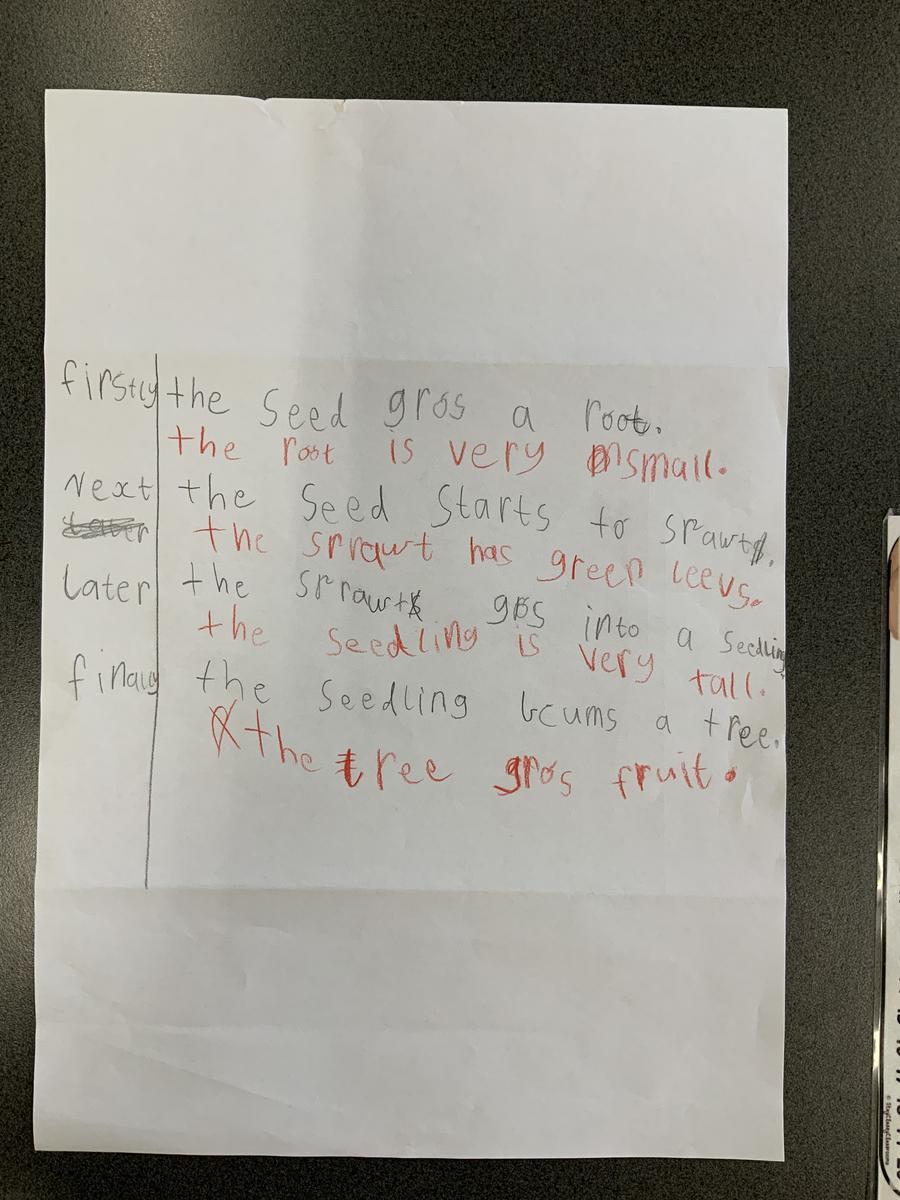 firstly the Seed gros a root.
the root is very small.
Next the Seed Starts to sprawt.
the srrawt has green leevs.
Later the sprrawt gos into a Seedling
the seedling is very tall.
finaly the Seedling bcums a tree.
the tree gros fruit.